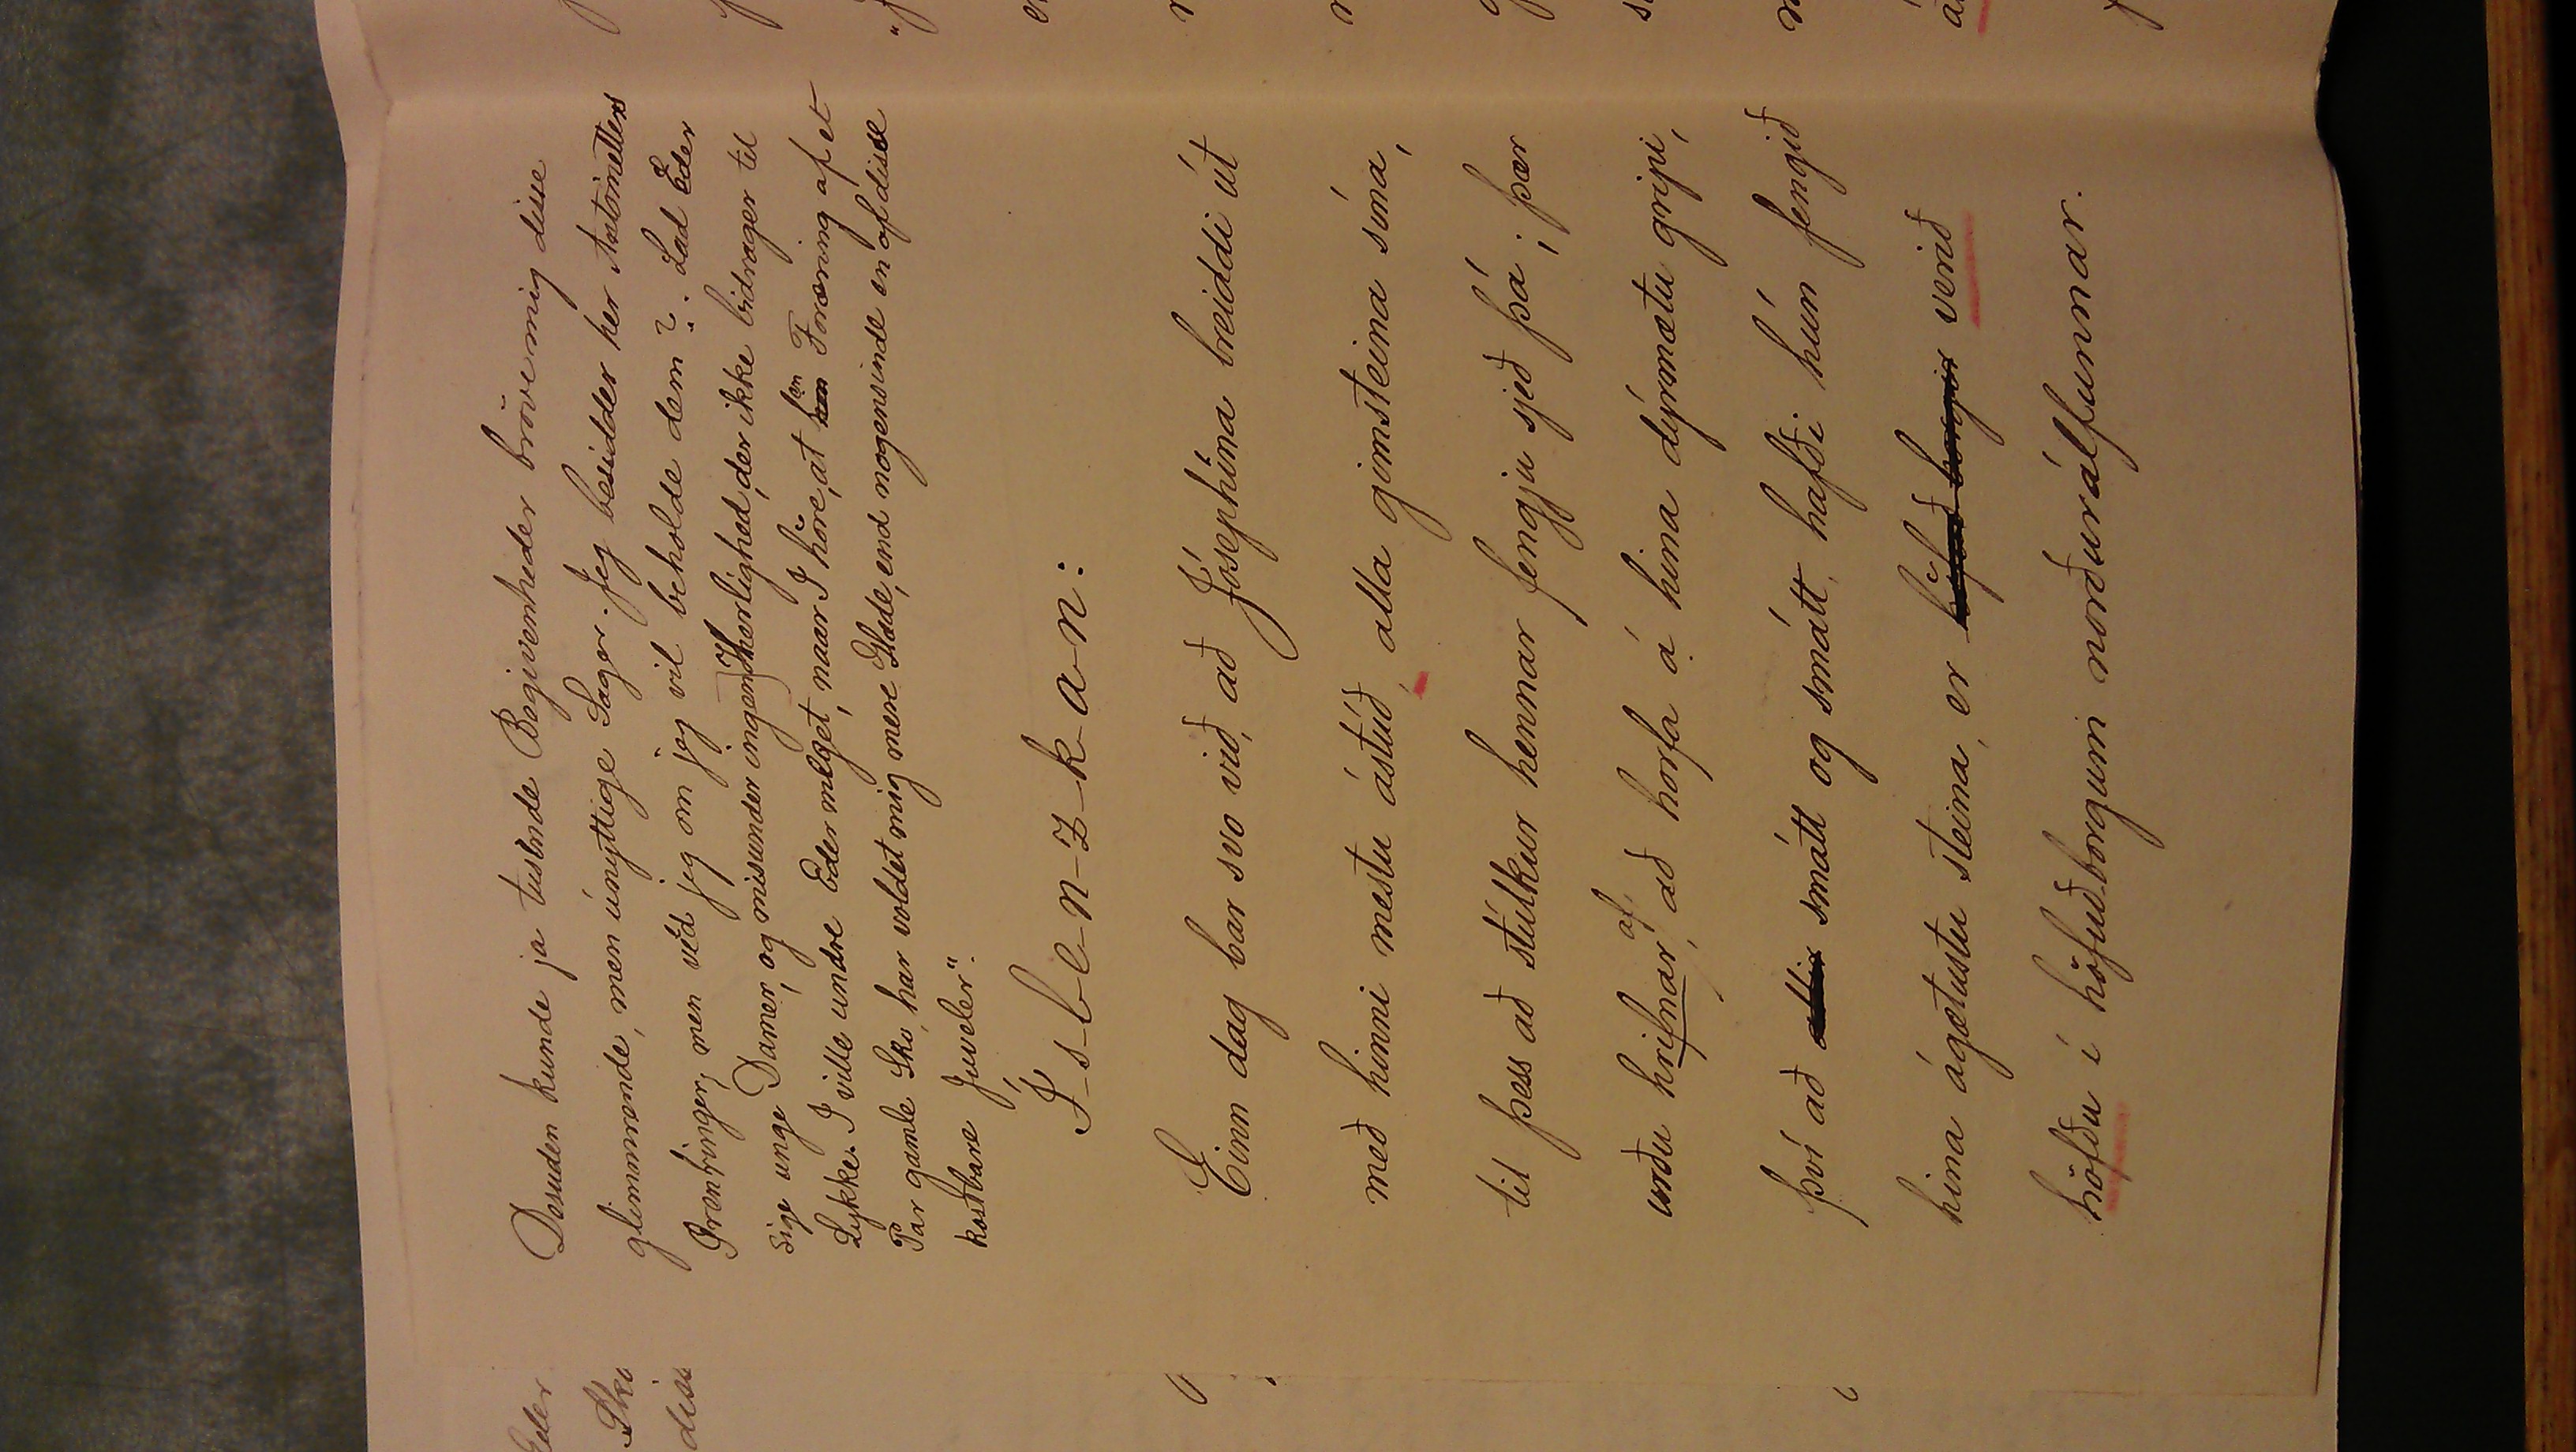 Desuden kunde ja tusinde Begivenheder bröve mig disse
glimmrende, men únyttige Sager. Jeg besidder her
men véd jeg om jeg vil beholde dem?. Lad Eder
sige unge Damer, og misunder ingen Herlighed, der ikke bidrager til
Lykke. I ville undre Eder meget, naar I höre, at en Foræring af et
Par gamle Sko, har voldet mig mere Glæde, end nogensinde en af disse
kostbare Juveler".
Í-s-l-e-n-z-k-a-n:
Einn dag bar svo við, að Jósephína breiddi út
með hinni mestu ástúð, alla gimsteina sína,
til þess að stúlkur hennar fengju sjeð þá; þær
urðu hrifnar af, að horfa á hina dýrmætu gripi,
því að smátt og smátt, hafði hún fengið
hina ágætustu steina, er verið
höfðu í höfuðborgum norðurálfunnar.
Eder.
Sko
disse